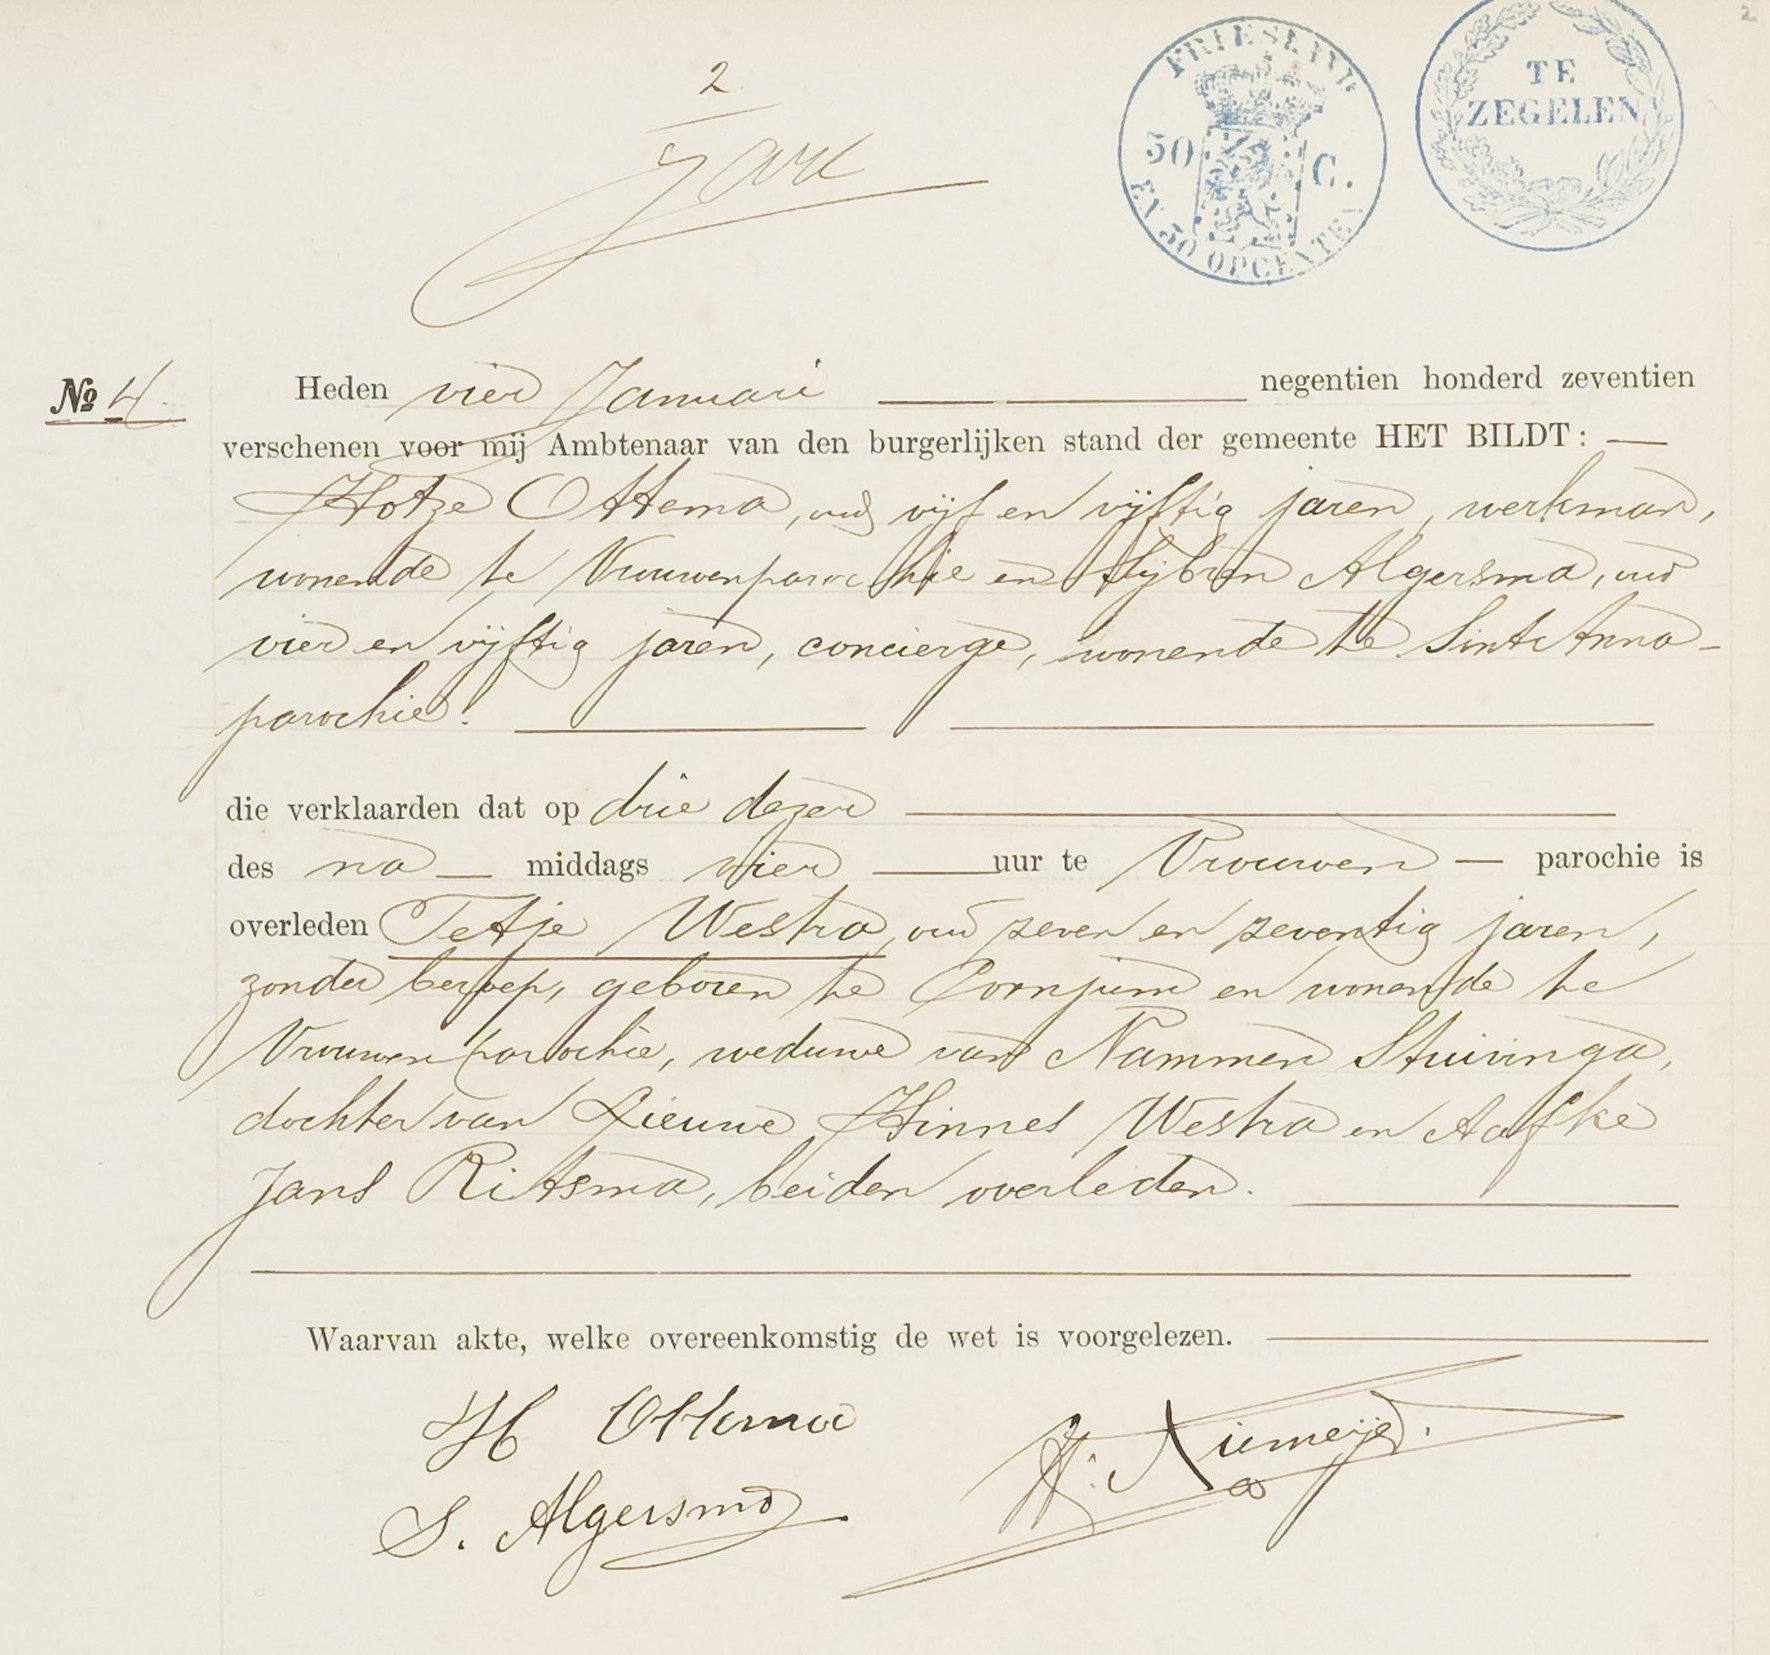 2
2
FRIESLAND
50 C.
EN 50 OPCENTEN
TE
ZEGELEN
No 4.
Heden vier Januari negentien honderd zeventien
verschenen voor mij Ambtenaar van den burgerlijken stand der gemeente HET BILDT:
Hotze Ottema, oud vijf en vijftig jaren, werkman,
wonende te Vrouwenparochie en Sijbren Algersma, oud
vier en vijftig jaren, concierge, wonende te Sint Anna-
parochie.
die verklaarden dat op drie dezer
des na middags vier uur te Vrouwen parochie is
overleden Tetje Westra, oud zeven en zeventig jaren,
zonder beroep, geboren te Cornjum en wonende te
Vrouwenparochie, weduwe van Nammen Stuivinga,
dochter van Lieuwe Hinnes Westra en Aafke
Jans Ritsma, beiden overleden.
Waarvan akte, welke overeenkomstig de wet is voorgelezen.
H Ottema
S. Algersma
Niemeijer.